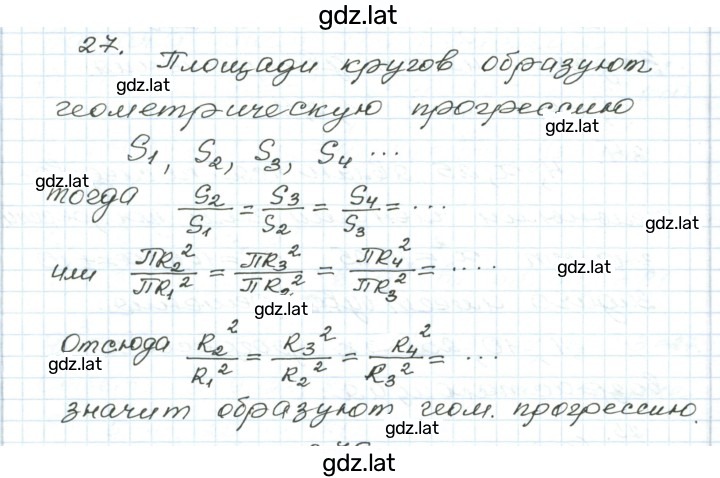 gdz.lat
27. Площади кругов образуют
gdz.lat
геометрическую прогрессию
gdz.lat
S₁, S₂, S₃, S₄ ...
gdz.lat
тогда S₂/S₁ = S₃/S₂ = S₄/S₃ = ...
gdz.lat
или ПR₂²/ПR₁² = ПR₃²/ПR₂² = ПR₄²/ПR₃² = ....
gdz.lat
gdz.lat
Отсюда R₂²/R₁² = R₃²/R₂² = R₄²/R₃² = ...
gdz.lat
значит образуют геом. прогрессию.
gdz.lat
gdz.lat